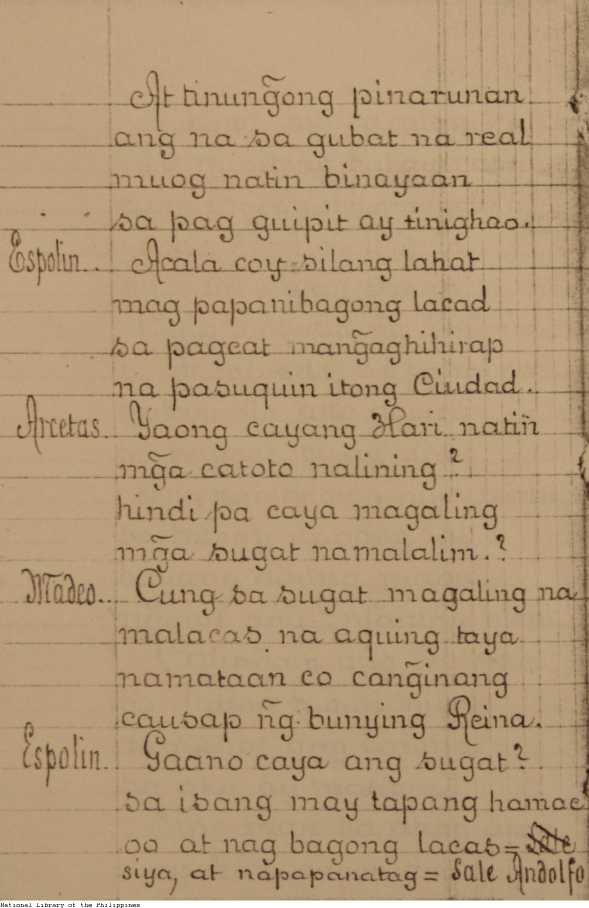 At tinung̃ong pinarunan
ang na sa gubat na real
muog natin binayaan
sa pag guipit ay tinighao.
Espolin.. Acala coy silang lahat
mag papanibagong lacad
sa pagcat mang̃aghihirap
na pasuquin itong Ciudad..
Arcetas. Yaong cayang Hari natin̄
mg̃a catoto nalining?
hindi pa caya magaling
mg̃a sugat namalalim.?
Madeo... Cung sa sugat magaling na
malacas na aquing taya
namataan co cang̃inang
causap ñg bunying Reina.
Espolin. Gaano caya ang sugat?
sa isang may tapang hamac
oo at nag bagong lacas= Sale
siya, at napapanatag = Sale Andolfo
National Library of the Philippines